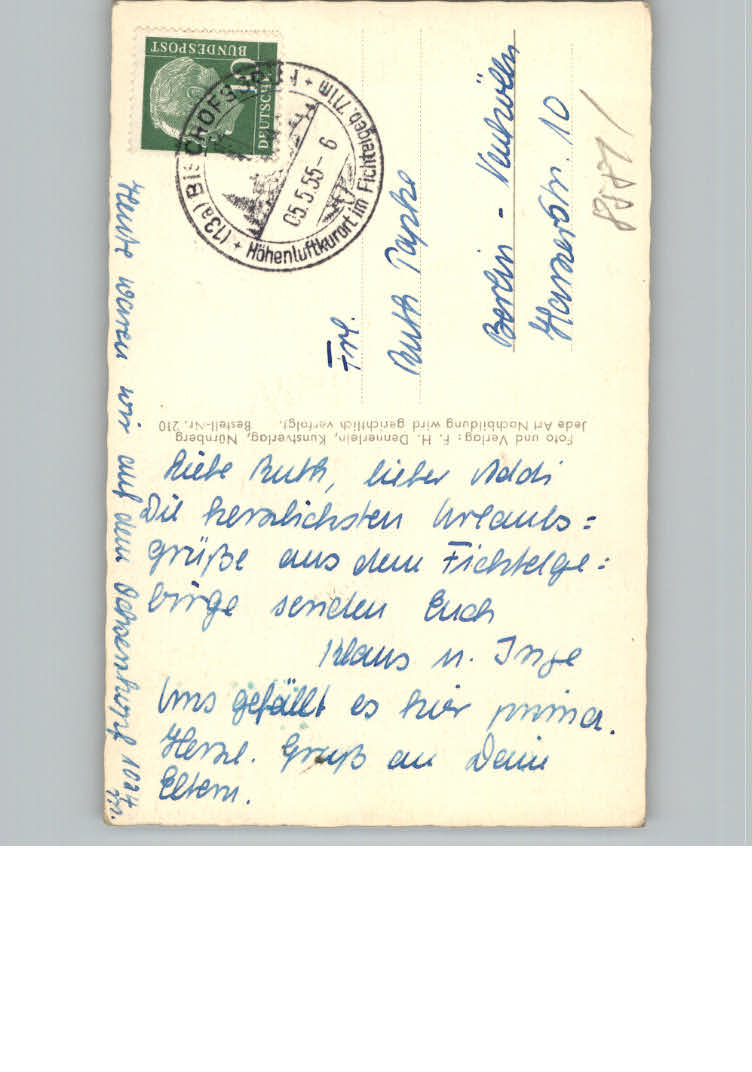 DEUTSCHE
BUNDESPOST
10
(13a) BISCHOFSGRÜN
05.5.55-6
+ Höhenluftkurort im Fichtelgeb. 711m +
Frl.
Ruth Papke
Berlin - Neukölln
Harzerstr. 10
Foto und Verlag: F. H. Dennerlein, Kunstverlag, Nürnberg
Jede Art Nachbildung wird gerichtlich verfolgt. Bestell-Nr. 210
Liebe Ruth, lieber Addi
Die herzlichsten Urlaubs=
grüße aus dem Fichtelge=
birge senden Euch
Klaus u. Inge
Uns gefällt es hier prima.
Herzl. Gruß an Deine
Eltern.
Heute waren wir auf dem Ochsenkopf 1024
m.